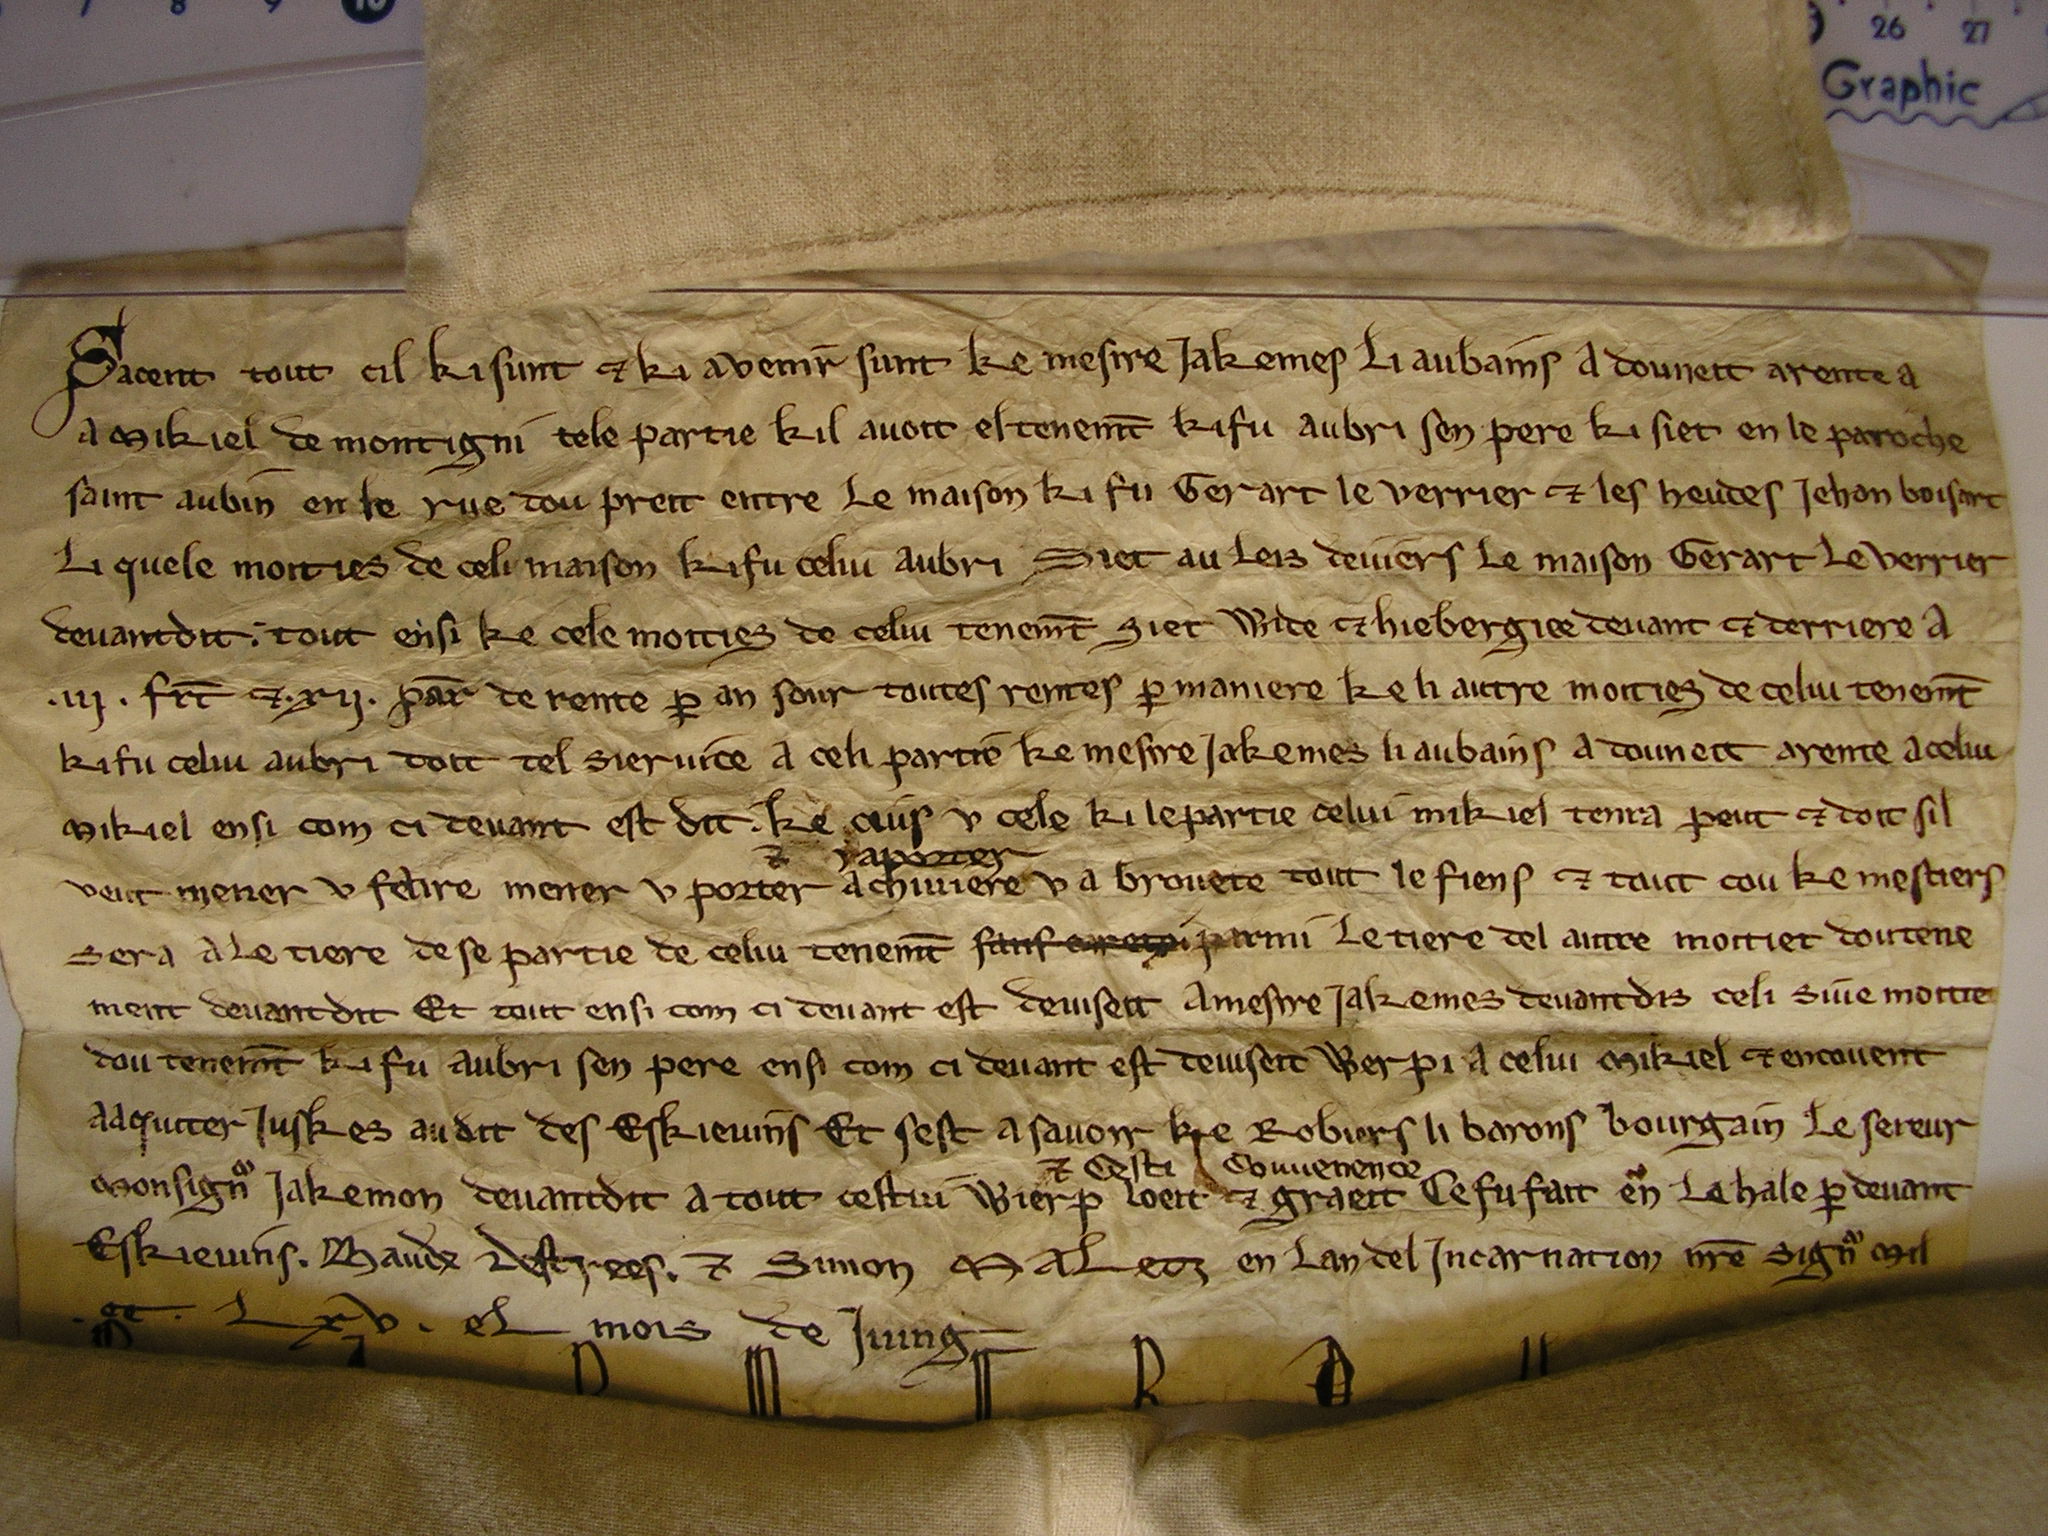 7 8 9 10
26 27
Graphic
Sacent tout cil ki sunt ⁊ ki avenir sunt ke mesire Jakemes li aubains a dounett a rente a
a Mikiel de montigni tele partie kil avoit el tenemt ki fu aubri sen pere ki siet en le paroche
saint aubin en le rue dou prett entre le maison ki fu Gerart le verrier ⁊ les heudes Jehan boisart
Li quele moities de celi maison ki fu celui aubri Siet au leis deviers le maison Gerart le verrier
devantdit. tout ensi ke cele moities de celui tenemt siet Wide ⁊ hiebergiee devant ⁊ derriere a
.iij. frt ⁊ .xij. par de rente p an sour toutes rentes p maniere ke li autre moities de celui tenemt
ki fu celui aubri doit tel siervice a celi partie ke mesire Jakemes li aubains a dounett a rente a celui
Mikiel ensi com ci devant est dit. ke cius v cele ki le partie celui mikiel tenra peut ⁊ doit sil
⁊ raporter
veut mener v fetire mener v porter a chiviere v a brouete tout le fiens ⁊ tout cou ke mestiers
sera a le tiere de se partie de celui tenemt parmi le tiere del autre moitiet dou tene
ment devantdit Et tout ensi com ci devant est devisett a mesire Jakemes devantdis celi siue moitie
dou tenemt ki fu aubri sen pere ensi com ci devant est devisett Werpi a celui Mikiel ⁊ encovent
a aquiter Juskes au dit des Eskievins Et sest a savoir ke Robiers li barons bourgain le sereur
⁊ Cesti Couvenence
Monsign Jakemon devantdit a tout cestui Wierp loett ⁊ graett Ce fu fait en le hale p devant
Eskievins. Baude destrees. ⁊ Simon Maletz en lan del Incarnation nre sign Mil
.cc. Lxv. el mois de Juing